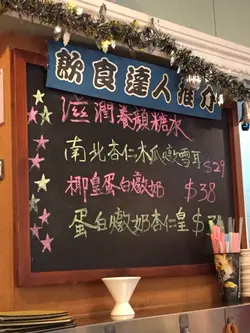 飲食達人推介
滋潤養顏糖水
南北杏仁木瓜燉雪耳 $29
椰皇蛋白燉奶 $38
蛋白燉奶杏仁皇 $3